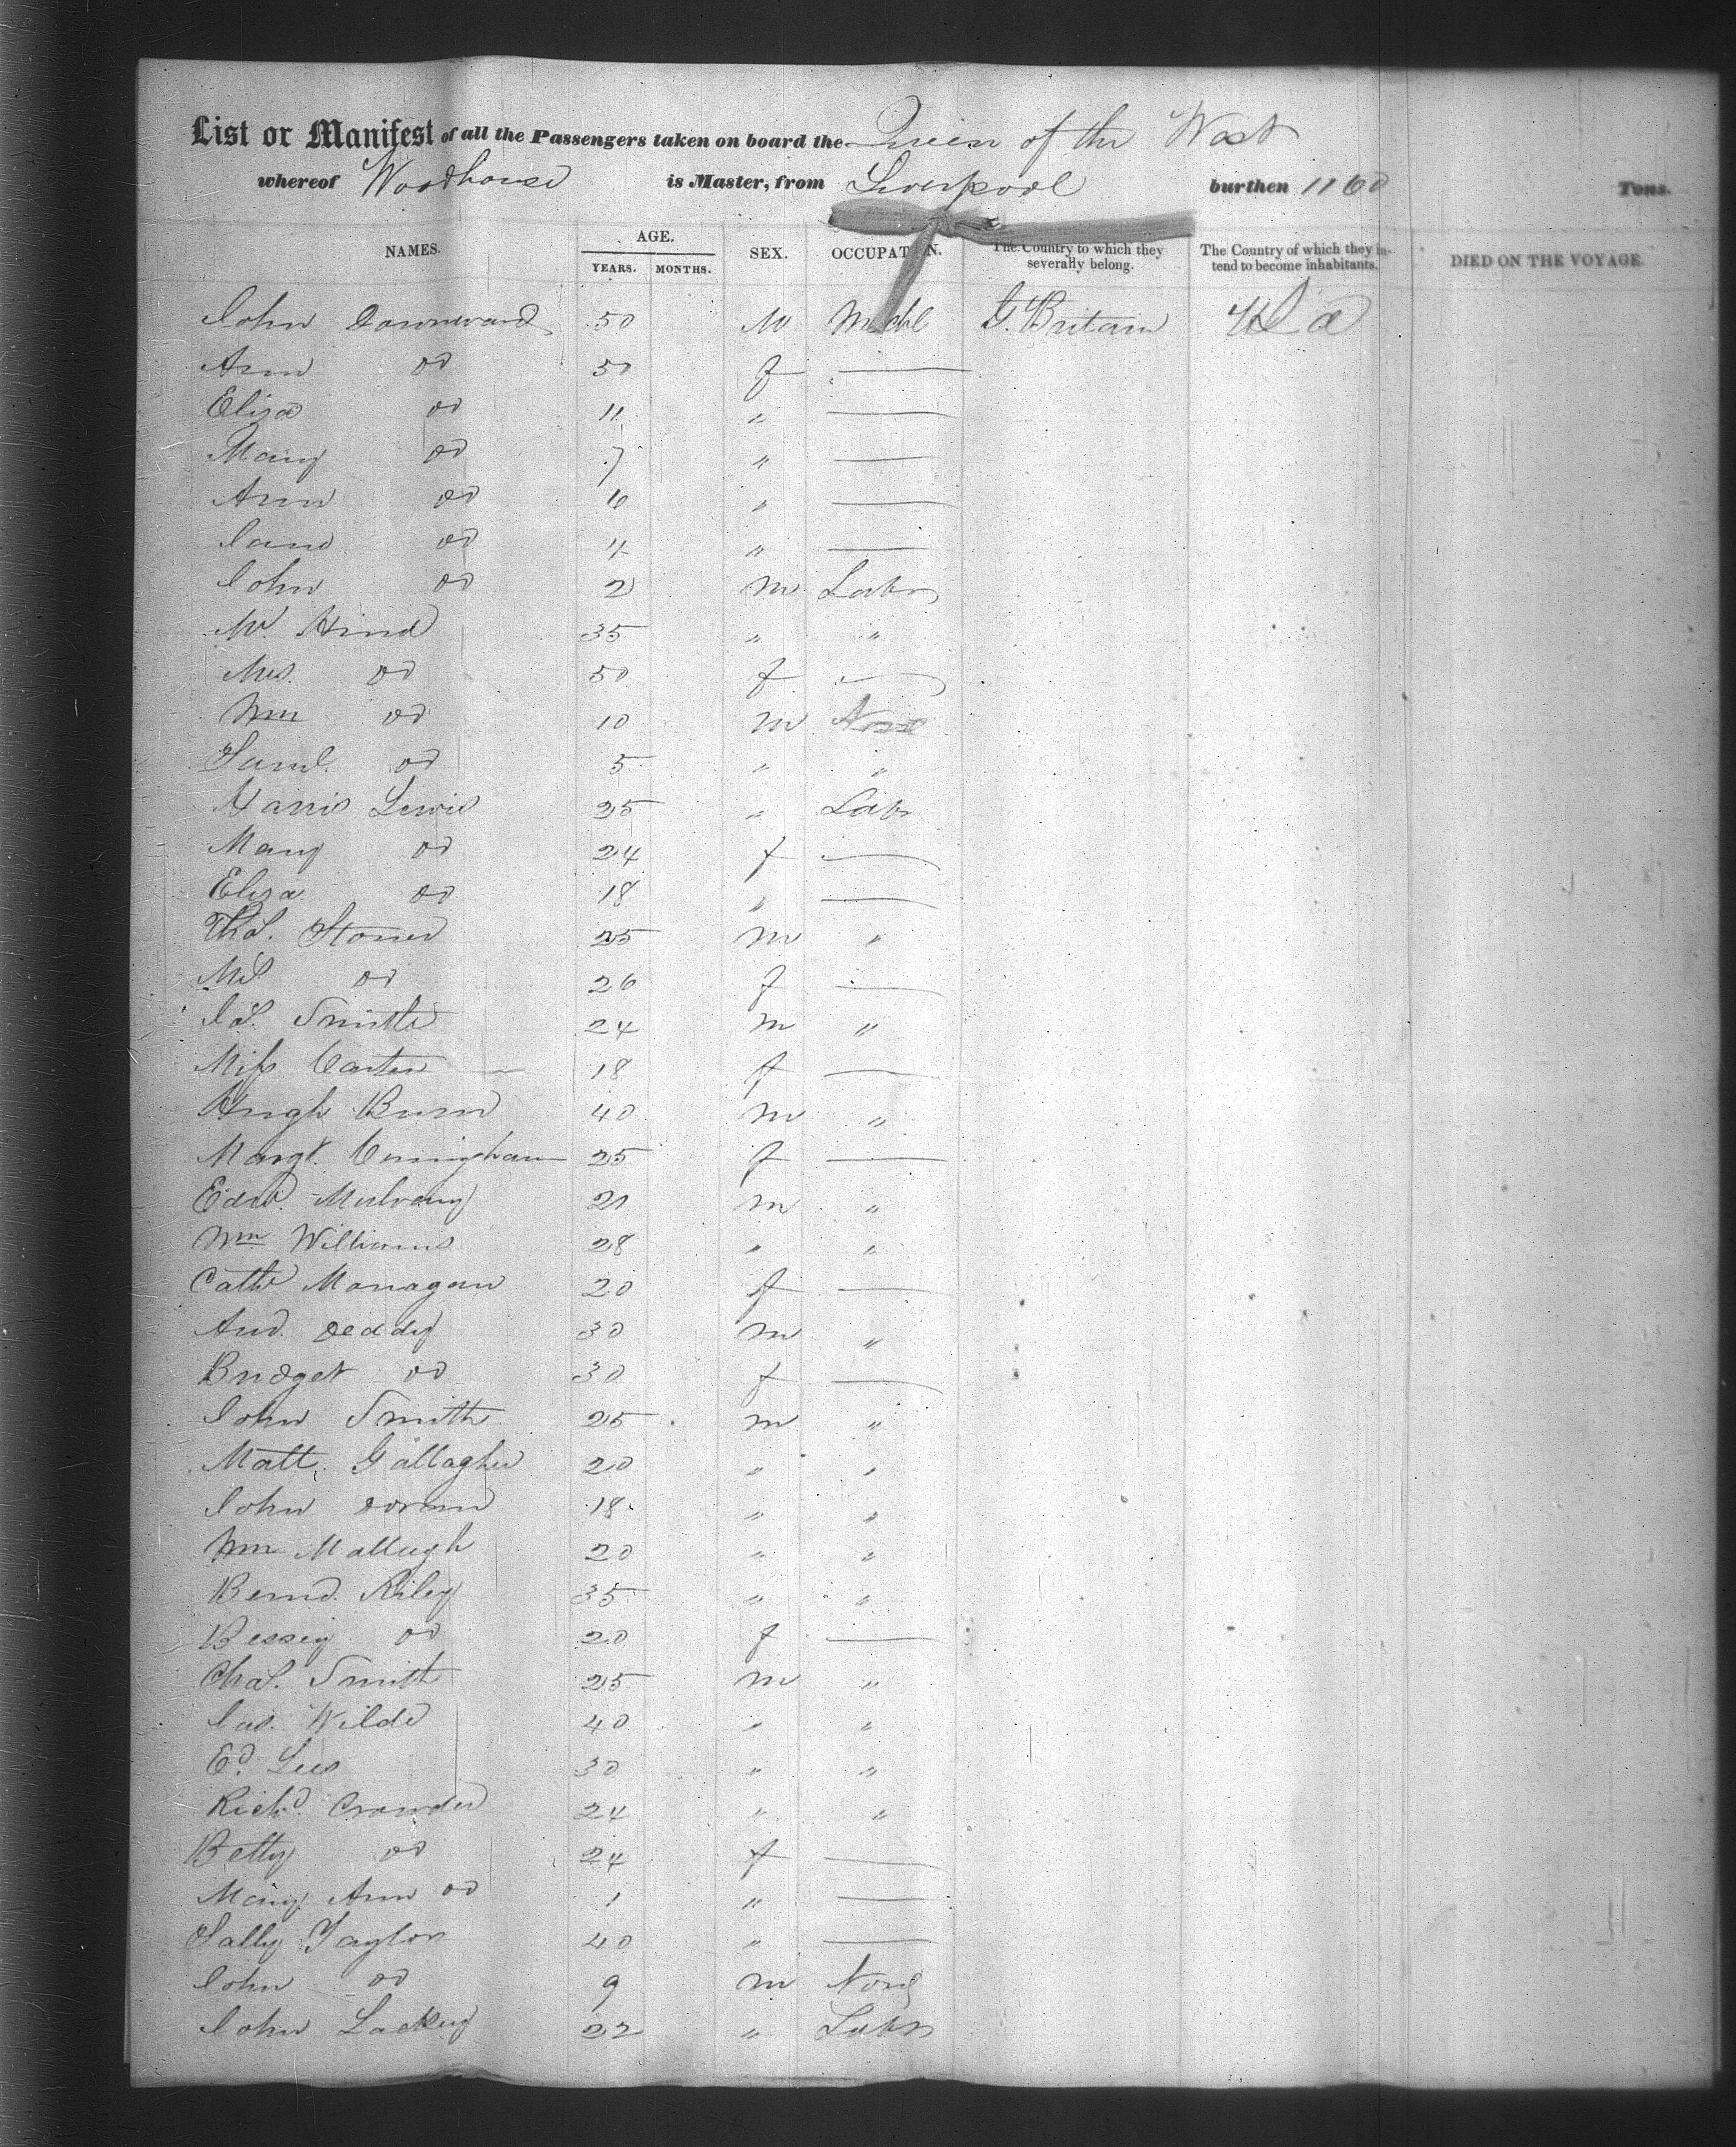 List or Manifest of all the Passengers taken on board the Queen of the West
whereof Woodhouse is Master, from Liverpool burthen 1160 Tons.
NAMES. AGE. YEARS. MONTHS. SEX. OCCUPATION. The Country to which they severally belong. The Country of which they intend to become inhabitants. DIED ON THE VOYAGE.
John Downward 50 M Mechl G. Britain
Ann do 50 f —
Eliza do 11 " —
Mary do 7 " —
Ann do 6 " —
Jane do 4 " —
John do 2 m Labr
Mr Hind 35 " "
Mrs. do 50 f —
Wm do 10 m None
Saml. do 5 " "
Harris Lewis 25 " Labr
Mary do 24 f —
Eliza do 18 " —
Thos. Stoner 25 m "
Ms do 26 f —
Js. Smith 24 m "
Miss Carter 18 f —
Hugh Burn 40 m "
Margt. Cuningham 25 f —
Edwd. Mulvany 21 m "
Wm Williams 28 " "
Cathe Monagan 20 f —
And. Deddy 30 m "
Bridget do 30 f —
John Smith 25 m "
Matt. Gallagher 20 " "
John Doran 18 " "
Wm Mallugh 20 " "
Bernd. Riley 35 " "
Bessey do 20 f —
Chas. Smith 25 m "
Jas. Wilde 40 " "
Ed. Lees 30 " "
Richd. Crowder 24 " "
Betty do 24 f —
Mary Ann do 1 " —
Sally Taylor 40 " —
John do 9 m None
John Lackey 22 " Labr